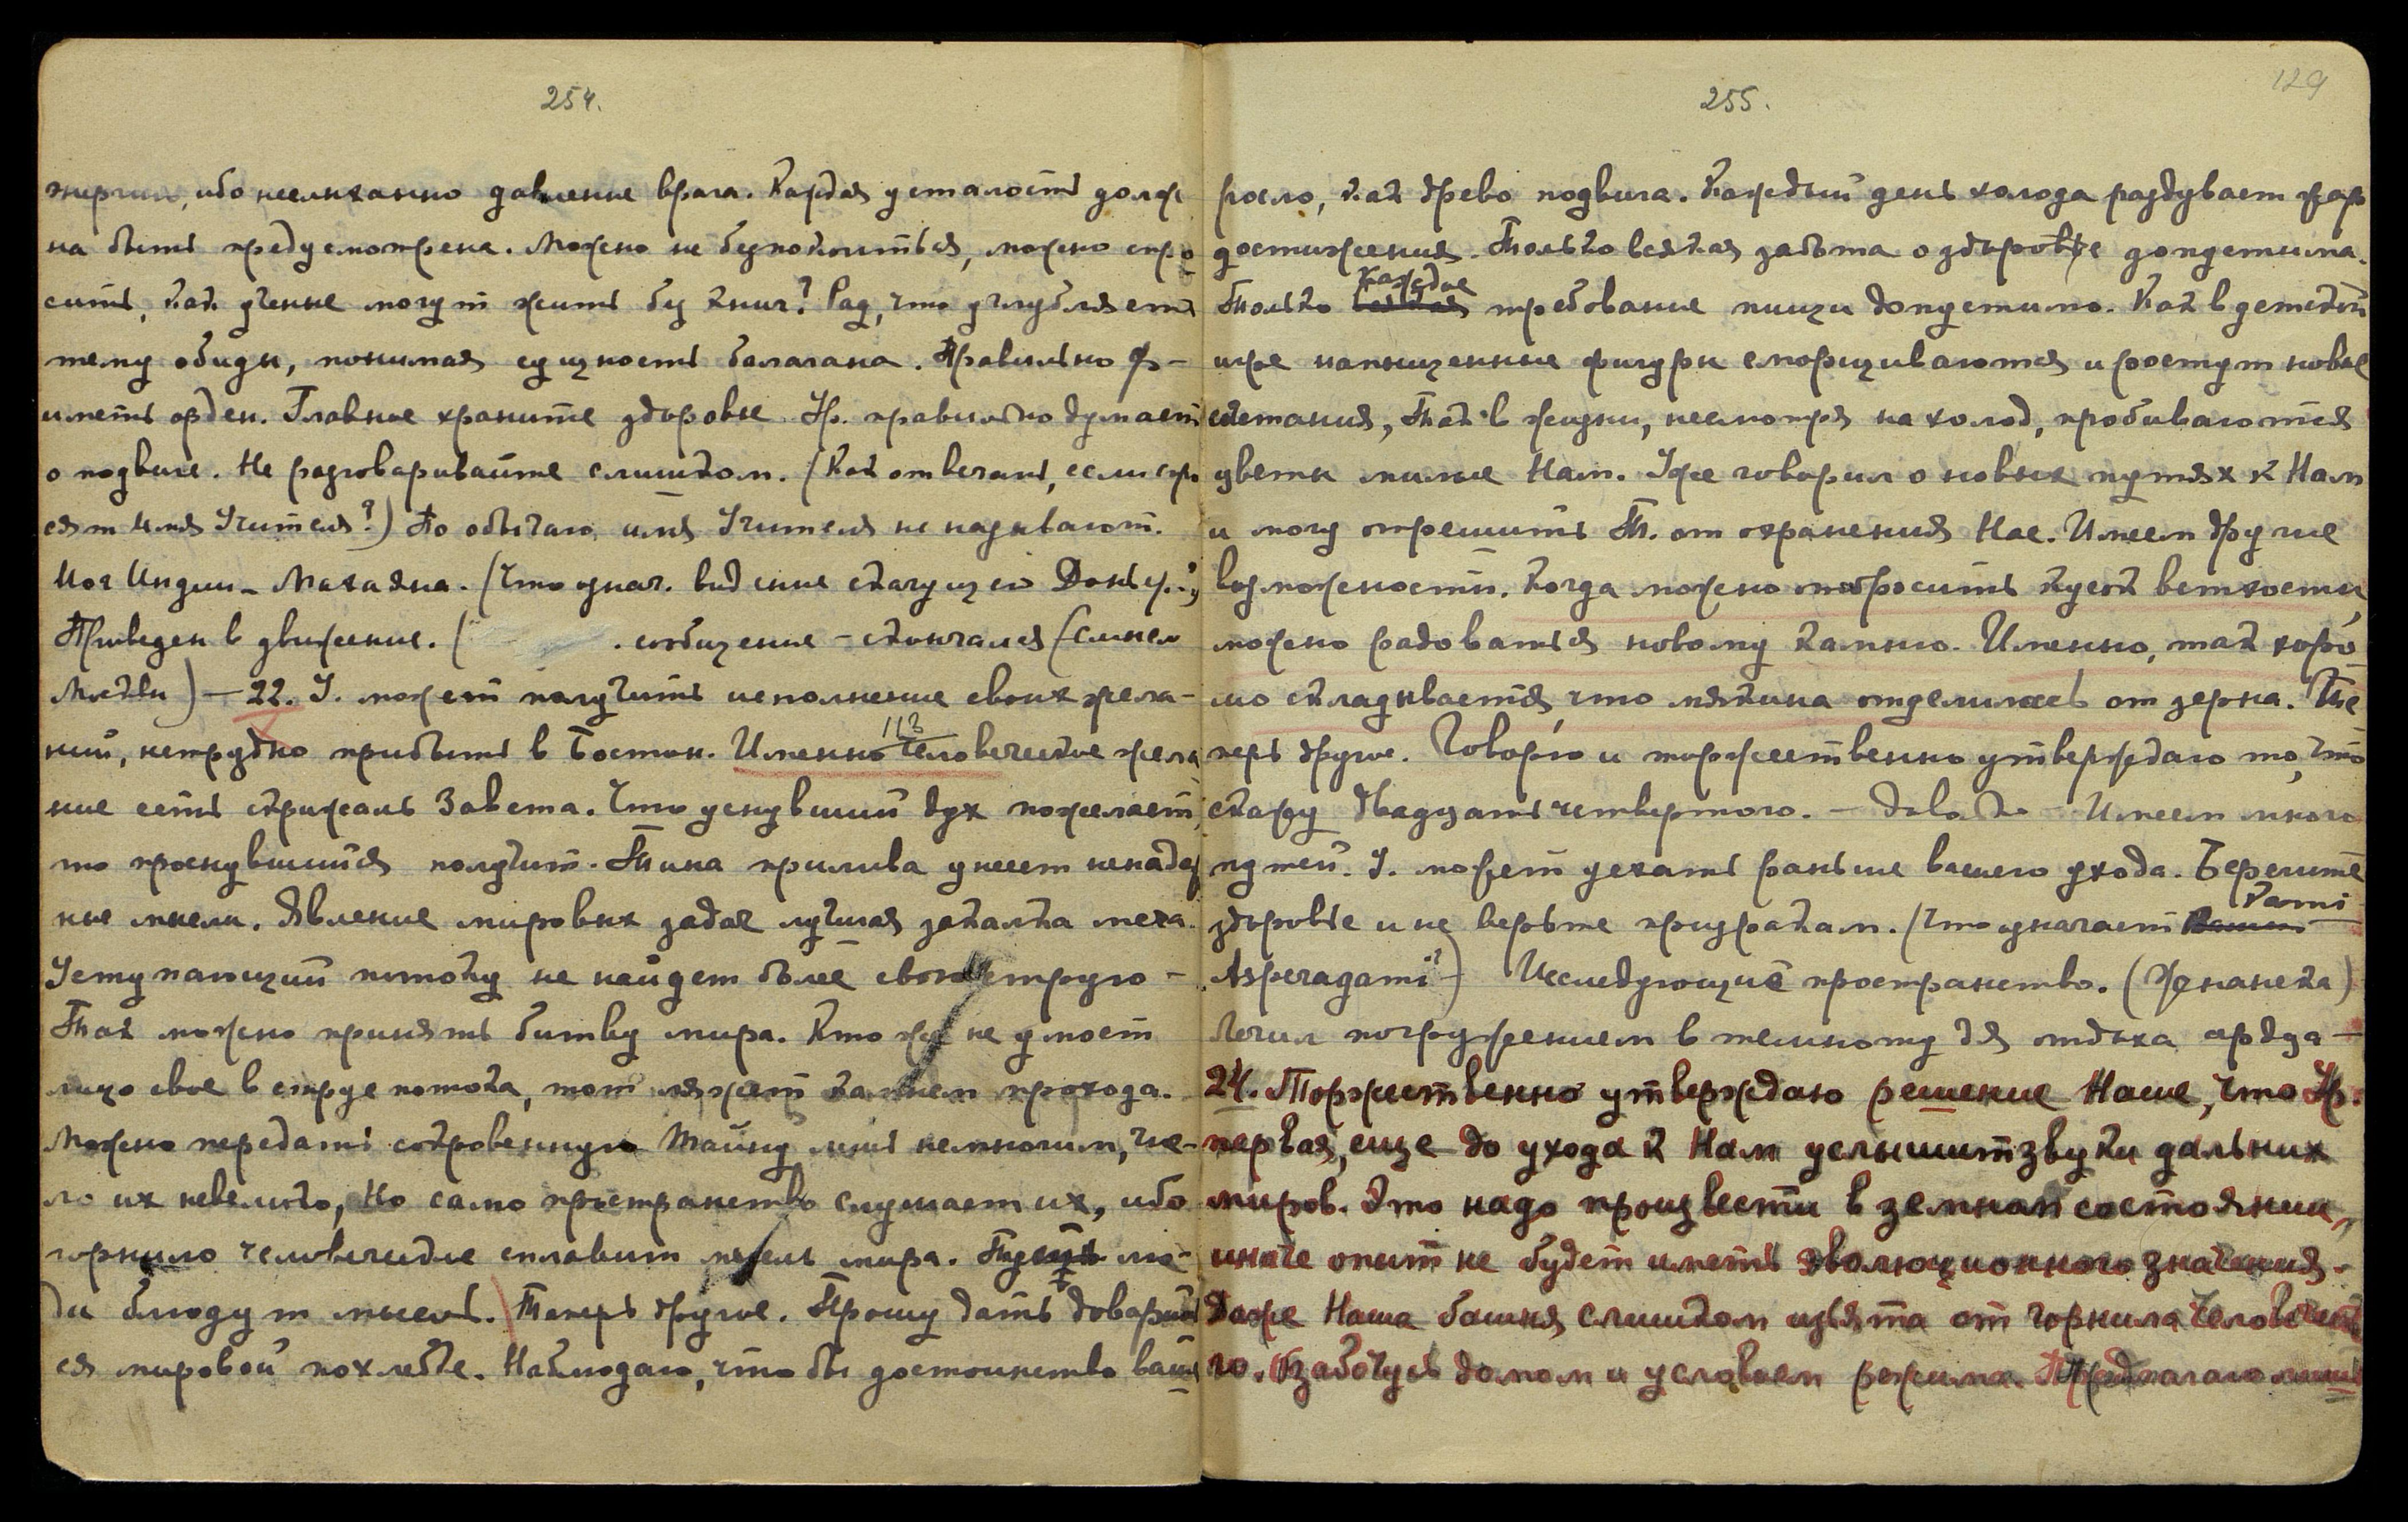 254.
энергии, ибо неслыханно давление врага. Каждая усталость долж
на быть предусмотрена. Можно не безпокоиться, можно спро
сить, как учение могут жить без книг? Рад, что углубляете
тему обиды, понимая сущность балагана. Правильно
иметь орден. Главное храните здоровье Ур. правильно думает
о подвиге. Не разговаривайте слишком. (Как отвечать, если спро
сят Имя Учителя?) По обычаю, имя Учителя не называют.
Иог Индии – Махаяна. (Что знач. видение скачущего
Приведен в движение. ( . сообщение – скончался (
) – 22. У. может получить исполнение своих жела-
ний, нетрудно прибыть в Бостон. Именно человеческое жела
113
ние есть скрижаль Завета. Что уснувший дух пожелает,
то проснувшийся получит. Тина прилива унесет ненадеж
ные мысли. Явление мировых задач лучшая закалка меча.
Уступающий потоку не найдет более свою струю –
Так можно принять битву мира. Кто же не умоет
лицо свое в струе потока, тот ляжет камнем прохода.
Можно передать сокровенную тайну лишь немногим, чис-
ло их невелико, но само пространство слушает их, ибо
горнило человеческое сплавит мысль мира. Пусть лю-
ди блюдут мысль. Теперь другое. Прошу дать доварить
ся мировой похлебке. Наблюдаю, что бы достоинство ваше
129
255.
росло, как древо подвига. Каждый день холода раздувает жар
достижения. Только всякая забота о здоровье допустима.
каждое
Только всякая требование пищи допустимо. Как в детской
игре напыщенные фигуры сморщиваются и растут новые
сочетания, так в жизни, несмотря на холод, пробиваются
цветы милые Нам. Уже говорил о новых путях к Нам
и могу отрешить Т. от охранения Нас. Имеем другие
возможности. Когда можно отбросить кусок ветхости,
можно радоваться новому камню. Именно, так хоро
шо складывается что мякина отделилась от зерна. Те
перь другое. Говорю и торжественно утверждаю то, что
скажу двадцать четвертого. – – Имеем много
путей. У. может уехать раньше вашего ухода. Берегите
здоровье и не верьте призракам. (Что означает
Asperagami?) Исследующие пространство. (
Лечил погружением в темноту для отдыха сердца –
24. Торжественно утверждаю решение Наше, что Ур.
первая, еще до ухода к Нам услышит звуки дальних
миров. Это надо произвести в земном состоянии,
иначе опыт не будет иметь эволюционного значения.
Даже Наша башня слишком изъята от горнила человеческо
го. Озабочусь домом и условием режима. Предлагаю лишь